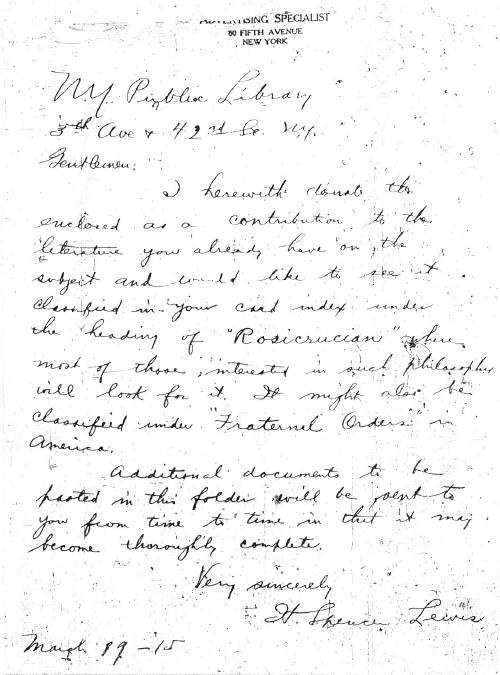 ADVERTISING SPECIALIST
80 FIFTH AVENUE
NEW YORK
N.Y. Public Library
5th Ave & 42nd St. N.Y.
Gentlemen:
I herewith donate the
enclosed as a contribution to the
literature you already have on the
subject and would like to see it
classified in your card index under
the heading of "Rosicrucian" where
most of those interested in such philosophy
will look for it. It might also be
classified under "Fraternal Orders" in
America.
Additional documents to be
pasted in this folder will be sent to
you from time to time in that it may
become thoroughly complete.
Very sincerely
H. Spencer Lewis
March 19 - 15